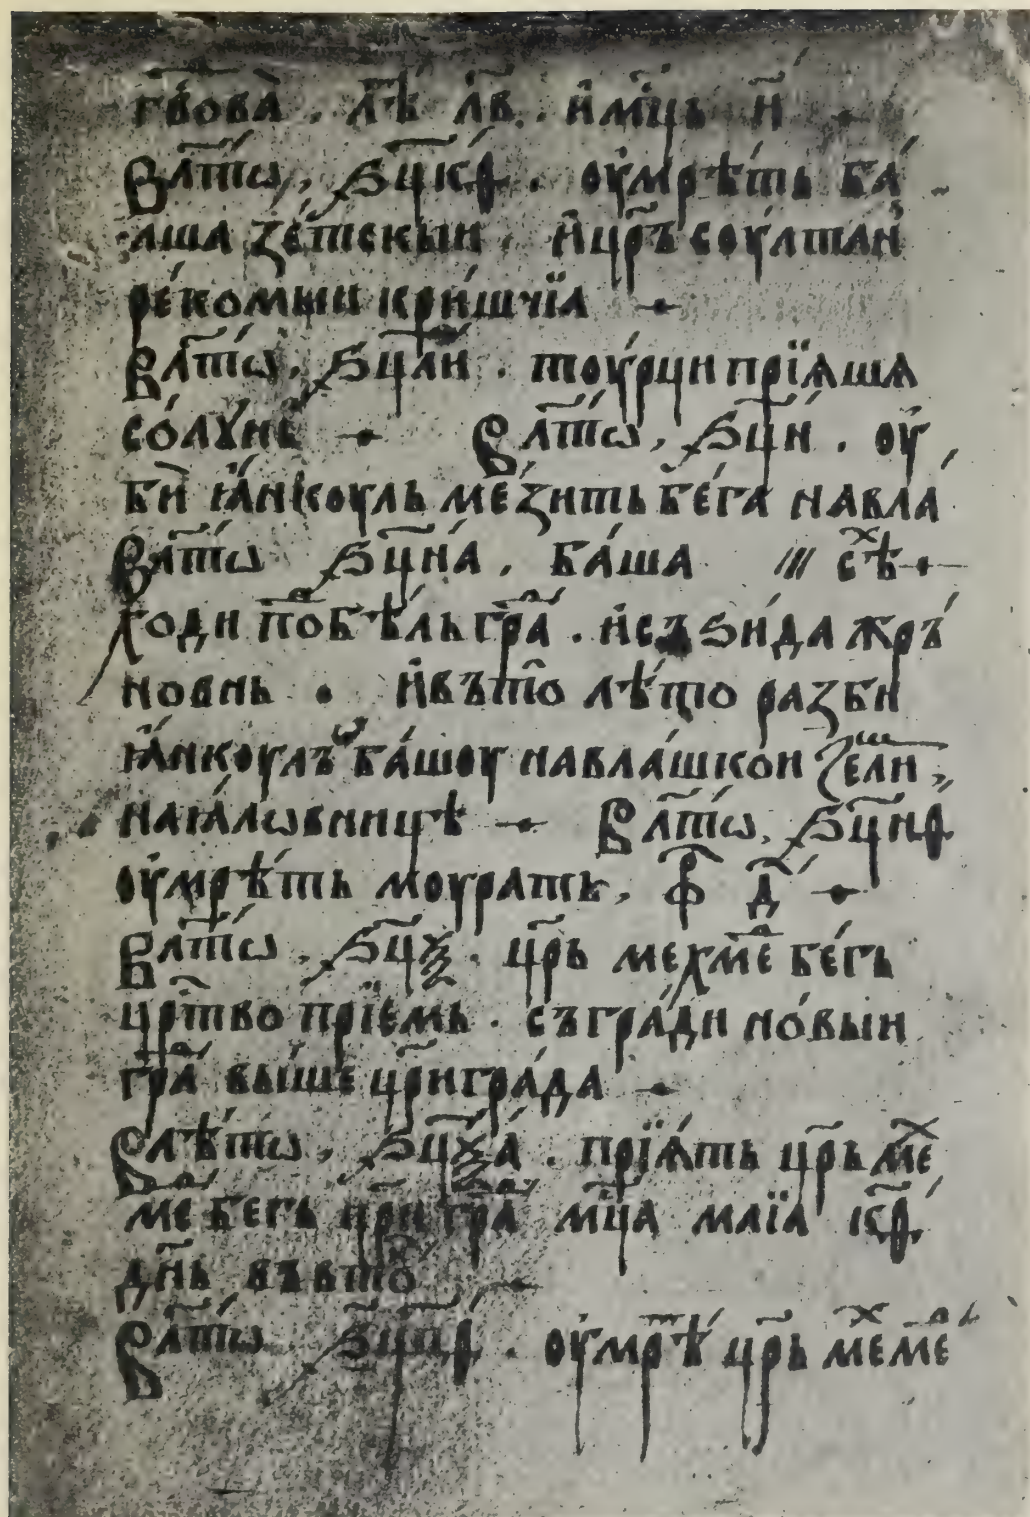 гв҃ова̀ . лѣ҃ л҃в . и҆мц҃ь и҃ ·
Влѣ҃тѡ , ѕц҃кѳ . оу҆мрѣ́ть ба́
лша зе́тскыи , и҆цр҃ъ соу́лтан
ре́комыи кри́шчїа ·
Влѣ҃тѡ , ѕц҃ли . тоу́рци прїѧшѧ
со́лꙋнь · Влѣ҃тѡ , ѕц҃н . оу҆
би̏ ꙗ҆нкоуль ме́ꙁить бе́га навла́
Влѣ҃тѡ ѕц҃на́ , ба́ша /// сѣⷯ
ходи поⷣбѣ́ль граⷣ . и҆съꙁи́да жръ́
новнь · и҆въто̑ лѣ́то раꙁби
ꙗ҆нкоулъ ба́шоу навла́шкои ꙁели ,
наꙗ҆́лѡвници · Влѣ҃тѡ , ѕц҃нѳ
оу҆мрѣ́ть моурать , ф҃ д҃ ·
Влѣ҃тѡ , ѕц҃ѯ . цр҃ь мехмеⷣ бе́гь
црⷭ҇тво прїе́мь . съгра́ди но́выи
граⷣ вы́ше цр҃игра́да ·
Влѣ́тѡ , ѕц҃ѯа́ . прїѧ́ть цр҃ь меⷯ
ме бегь цр҃и граⷣ мц҃а маїа к҃ѳ
дн҃ь въвтоⷬ ·
Влѣ҃тѡ ѕц҃пѳ . оу҆мрѣ́ⷮ цр҃ь меⷯмеⷣ